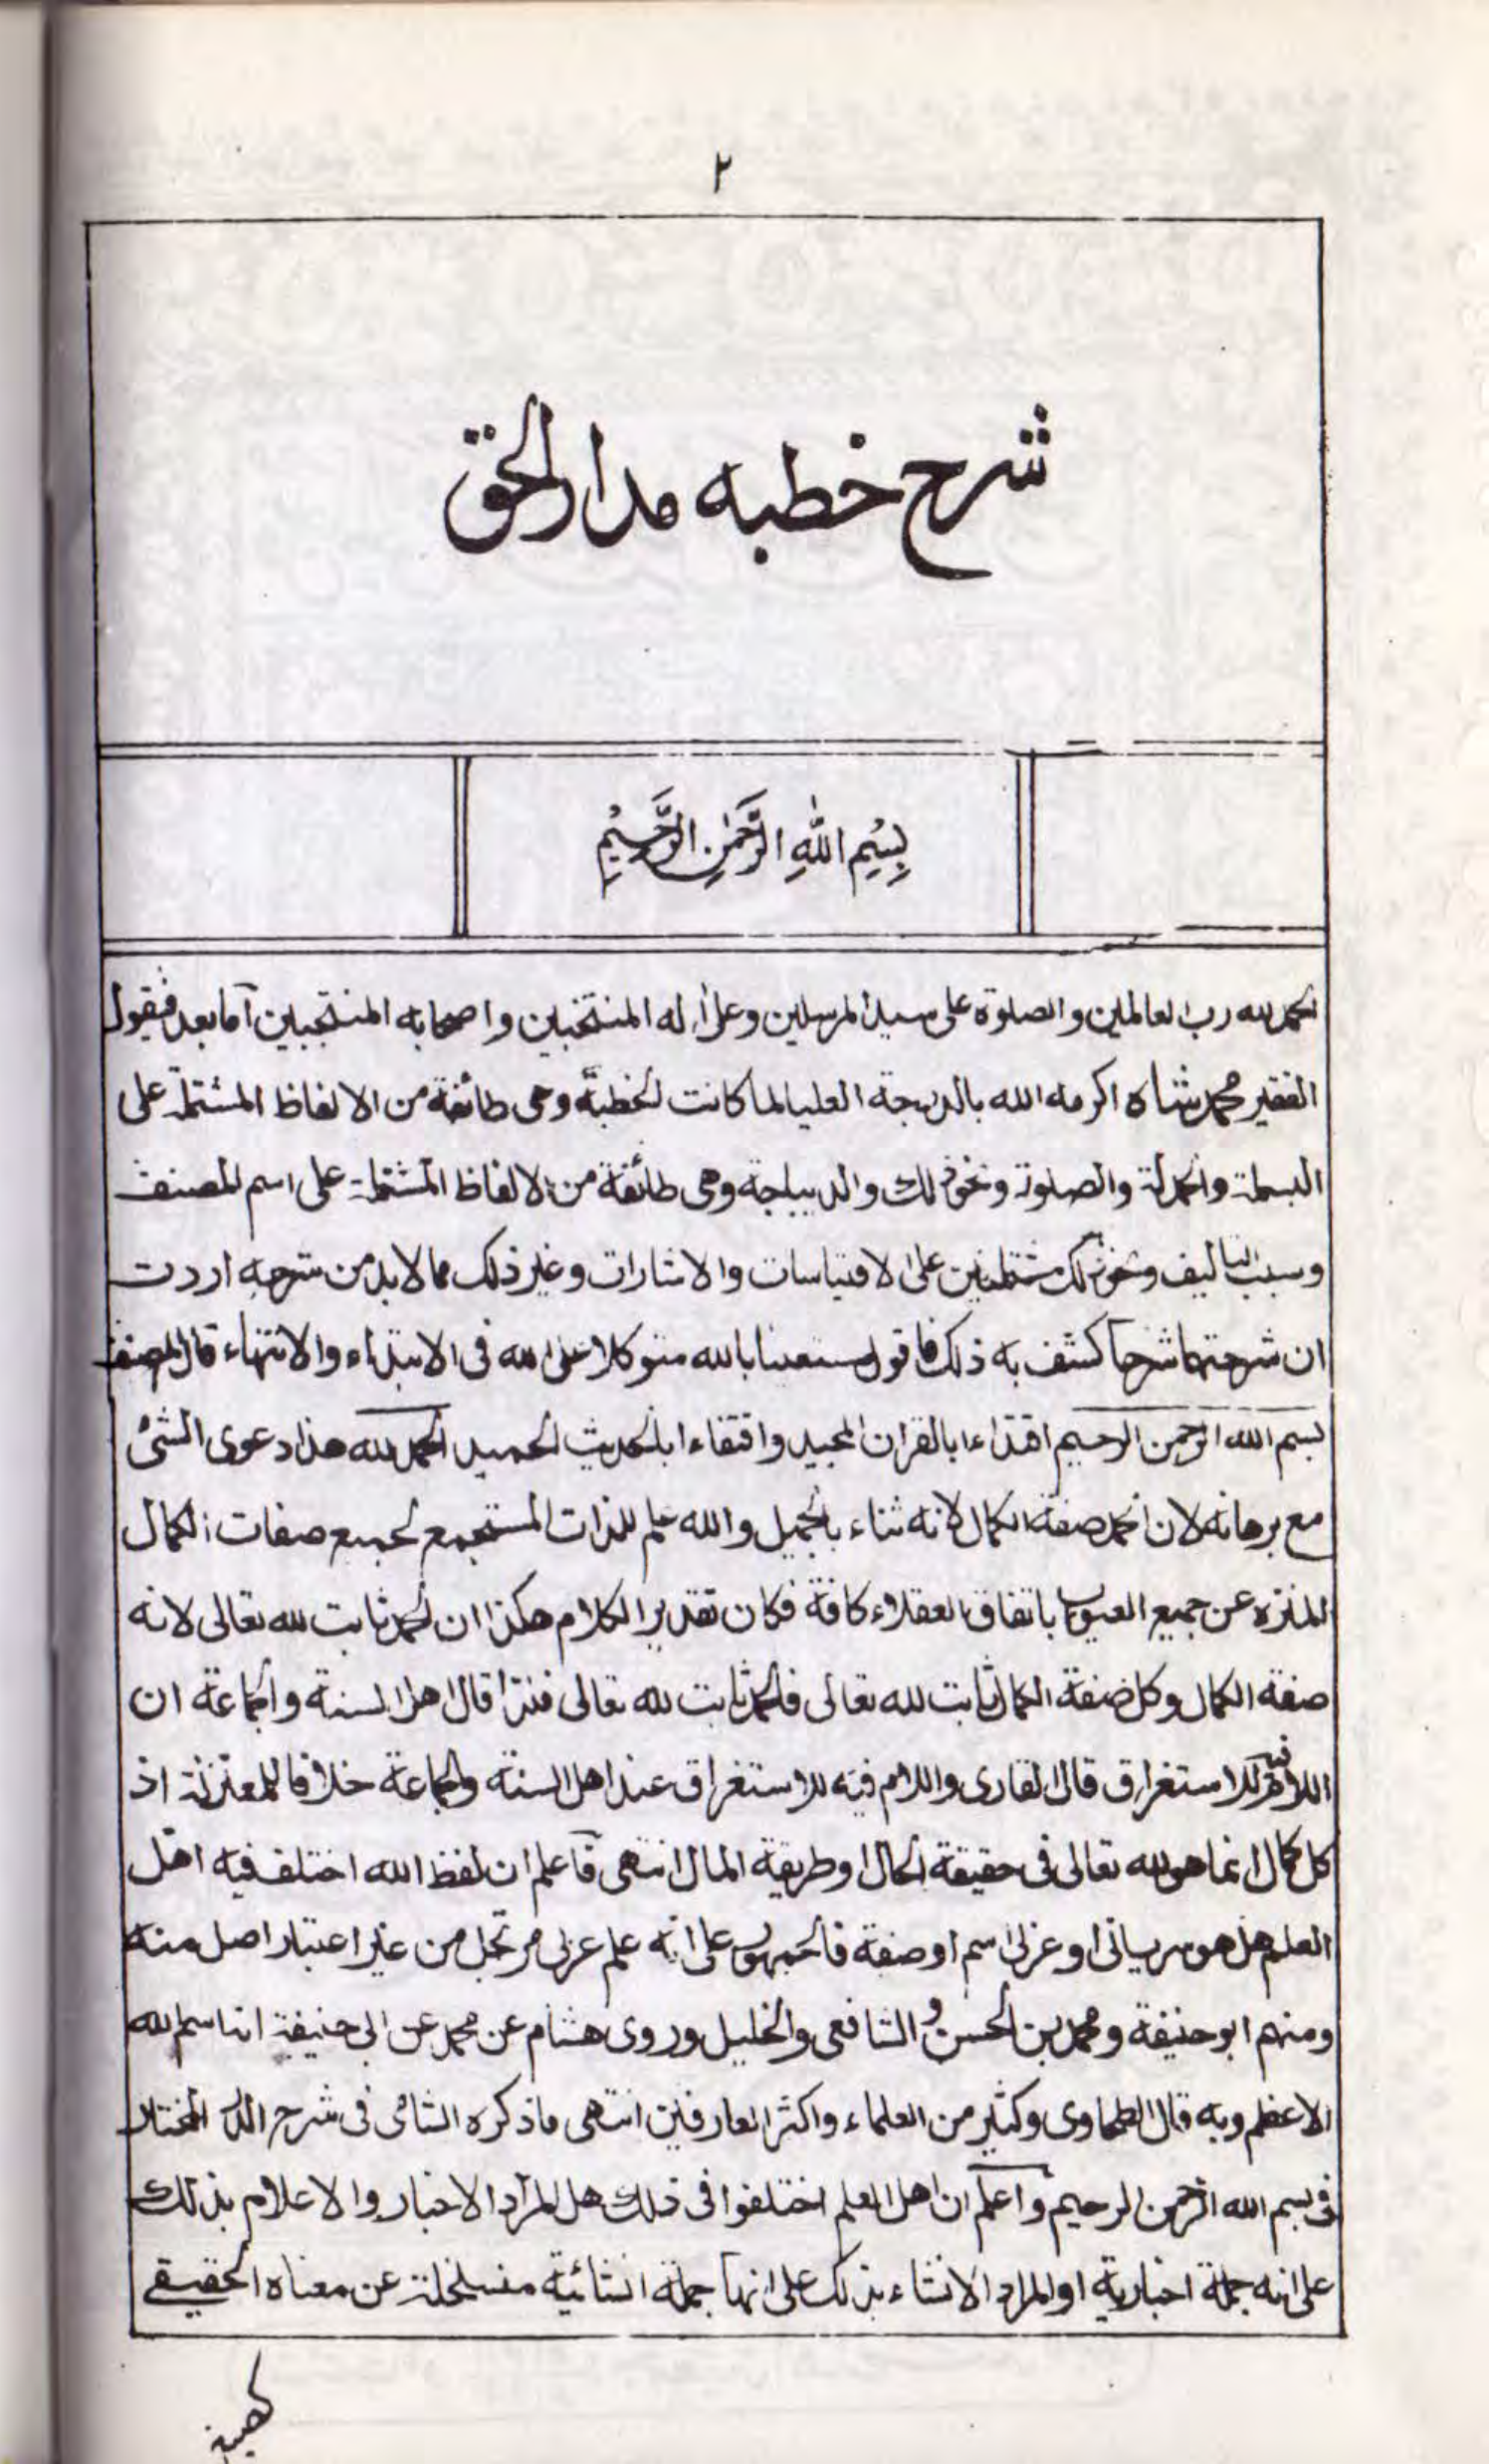 ٢
شرح خطبه مدار الحق
بِسْمِ اللّٰهِ الرَّحْمٰنِ الرَّحِيْمِ
الحمد لله رب العالمين والصلوة على سيد المرسلين وعلى اله المنتخبين واصحابه المنتجبين آما بعد فيقول
الفقير محمد شاه اكرمه الله بالدرجة العليا لما كانت الخطبة وهى طائفة من الالفاظ المشتملة على
البسملة والحمدلة والصلوة ونحو ذلك والديباجة وهى طائفة من الالفاظ المشتملة على اسم المصنف
وسبب التاليف ونحو ذلك مشتملتين على الاقتباسات والاشارات وغير ذلك مما لابد من شرحه اردت
ان شرحتهما شرحا كشف به ذلك فاقول مستعينا بالله متوكلا على الله فى الابتداء والانتهاء قال المصنف
بسم الله الرحمن الرحيم اقتداءا بالقران المجيد واقتفاءا بالحديث الحميد الحمد لله هذا دعوى الشئ
مع برهانه لان الحمد صفة الكمال لانه ثناء بالجميل والله علم للذات المستجمع لجميع صفات الكمال
المنزه عن جميع العيوب باتفاق العقلاء كافة فكان تقدير الكلام هكذا ان الحمد ثابت لله تعالى لانه
صفة الكمال وكل صفة الكمال ثابت لله تعالى فالحمد ثابت لله تعالى فلذا قال اهل السنة والجماعة ان
اللام فيه للاستغراق قال القارى واللام فيه للاستغراق عند اهل السنة والجماعة خلافا للمعتزلة اذ
كل كمال انما هو لله تعالى فى حقيقة الحال او طريقة المال انتهى فاعلم ان لفظ الله اختلف فيه اهل
العلم هل هو سريانى او عربى اسم او صفة فالجمهور على انه علم عربى مرتجل من غير اعتبار اصل منه
ومنهم ابو حنيفة ومحمد بن الحسن والشافعى والخليل وروى هشام عن محمد عن ابى حنيفة انه اسم الله
الاعظم وبه قال الطحاوى وكثير من العلماء واكثر العارفين انتهى ماذكره الشامى فى شرح الدر المختار
فى بسم الله الرحمن الرحيم واعلم ان اهل العلم اختلفوا فى ذلك هل المراد الاخبار والاعلام بذلك
على انه جملة اخبارية او المراد الانشاء بذلك على انها جملة انشائية منسلخلة عن معناه الحقيقے